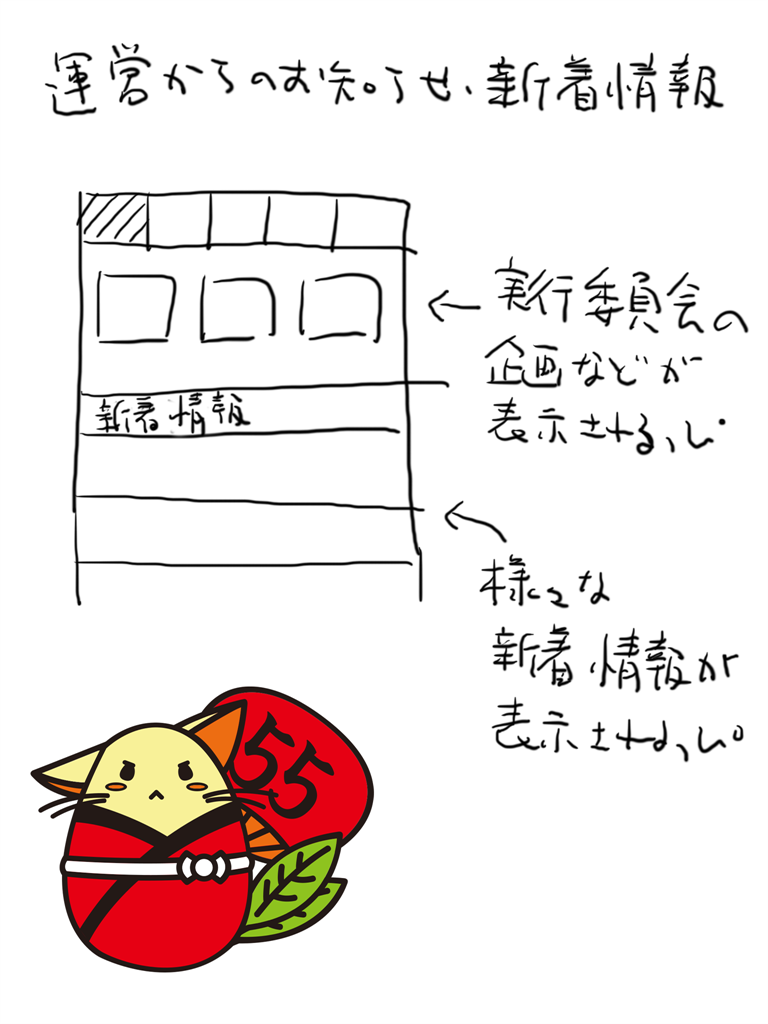 運営からのお知らせ、新着情報
新着情報
←実行委員会の
企画などが
表示されるっぴ。
様々な
新着情報が
表示されるっぴ。
55